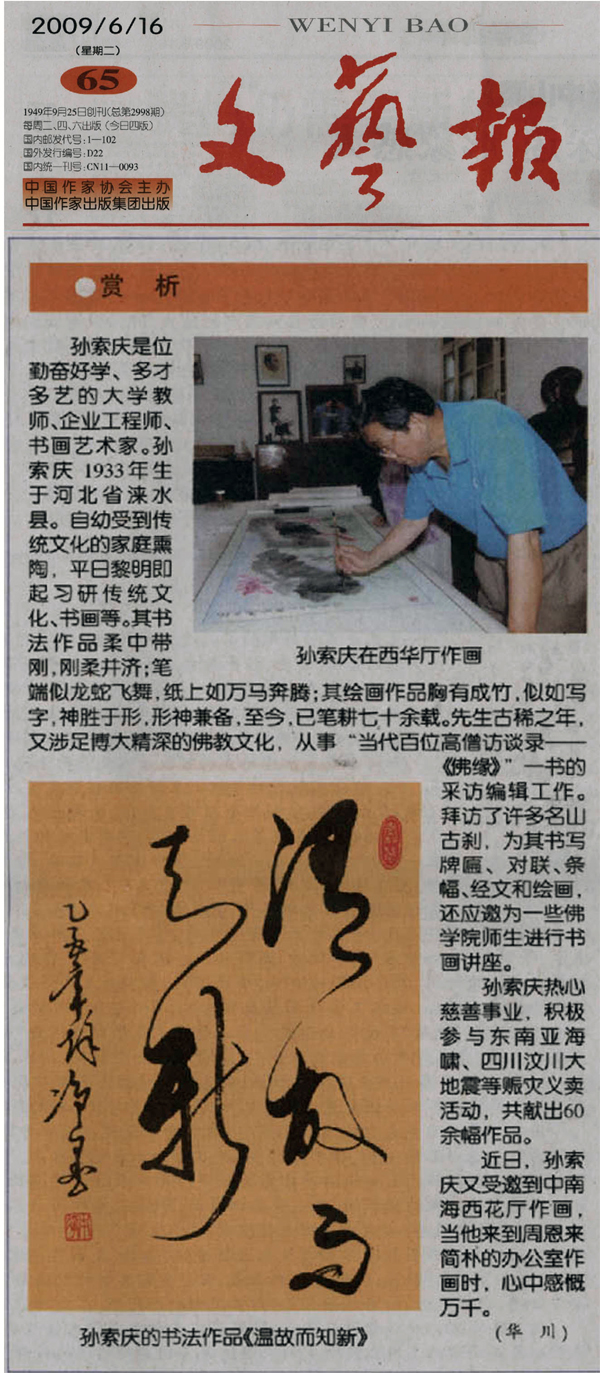 2009/6/16
(星期二)
65
1949年9月25日创刊(总第2998期)
每周二、四、六出版(今日四版)
国内邮发代号:1—102
国外发行编号:D22
国内统一刊号:CN11—0093
中国作家协会主办
中国作家出版集团出版
WENYI BAO
文藝報
●赏 析
孙索庆是位
勤奋好学、多才
多艺的大学教
师、企业工程师、
书画艺术家。孙
索庆 1933年生
于河北省涞水
县。自幼受到传
统文化的家庭熏
陶，平日黎明即
起习研传统文
化、书画等。其书
法作品柔中带
刚,刚柔并济;笔
端似龙蛇飞舞,纸上如万马奔腾;其绘画作品胸有成竹,似如写
字,神胜于形,形神兼备,至今,已笔耕七十余载。先生古稀之年,
又涉足博大精深的佛教文化，从事“当代百位高僧访谈录——
《佛缘》”一书的
采访编辑工作。
拜访了许多名山
古刹，为其书写
牌匾、对联、条
幅、经文和绘画，
还应邀为一些佛
学院师生进行书
画讲座。
孙索庆热心
慈善事业，积极
参与东南亚海
啸、四川汶川大
地震等赈灾义卖
活动，共献出60
余幅作品。
近日，孙索
庆又受邀到中南
海西花厅作画，
当他来到周恩来
简朴的办公室作
画时，心中感慨
万千。
(华 川)
孙索庆在西华厅作画
温故而
知新
孙索庆的书法作品《温故而知新》